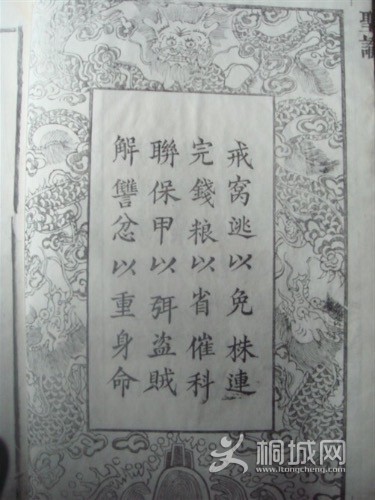 聖諭
戒窝逃以免株連
完錢粮以省催科
聯保甲以弭盜賊
解讐忿以重身命
桐城网
www.itongcheng.com